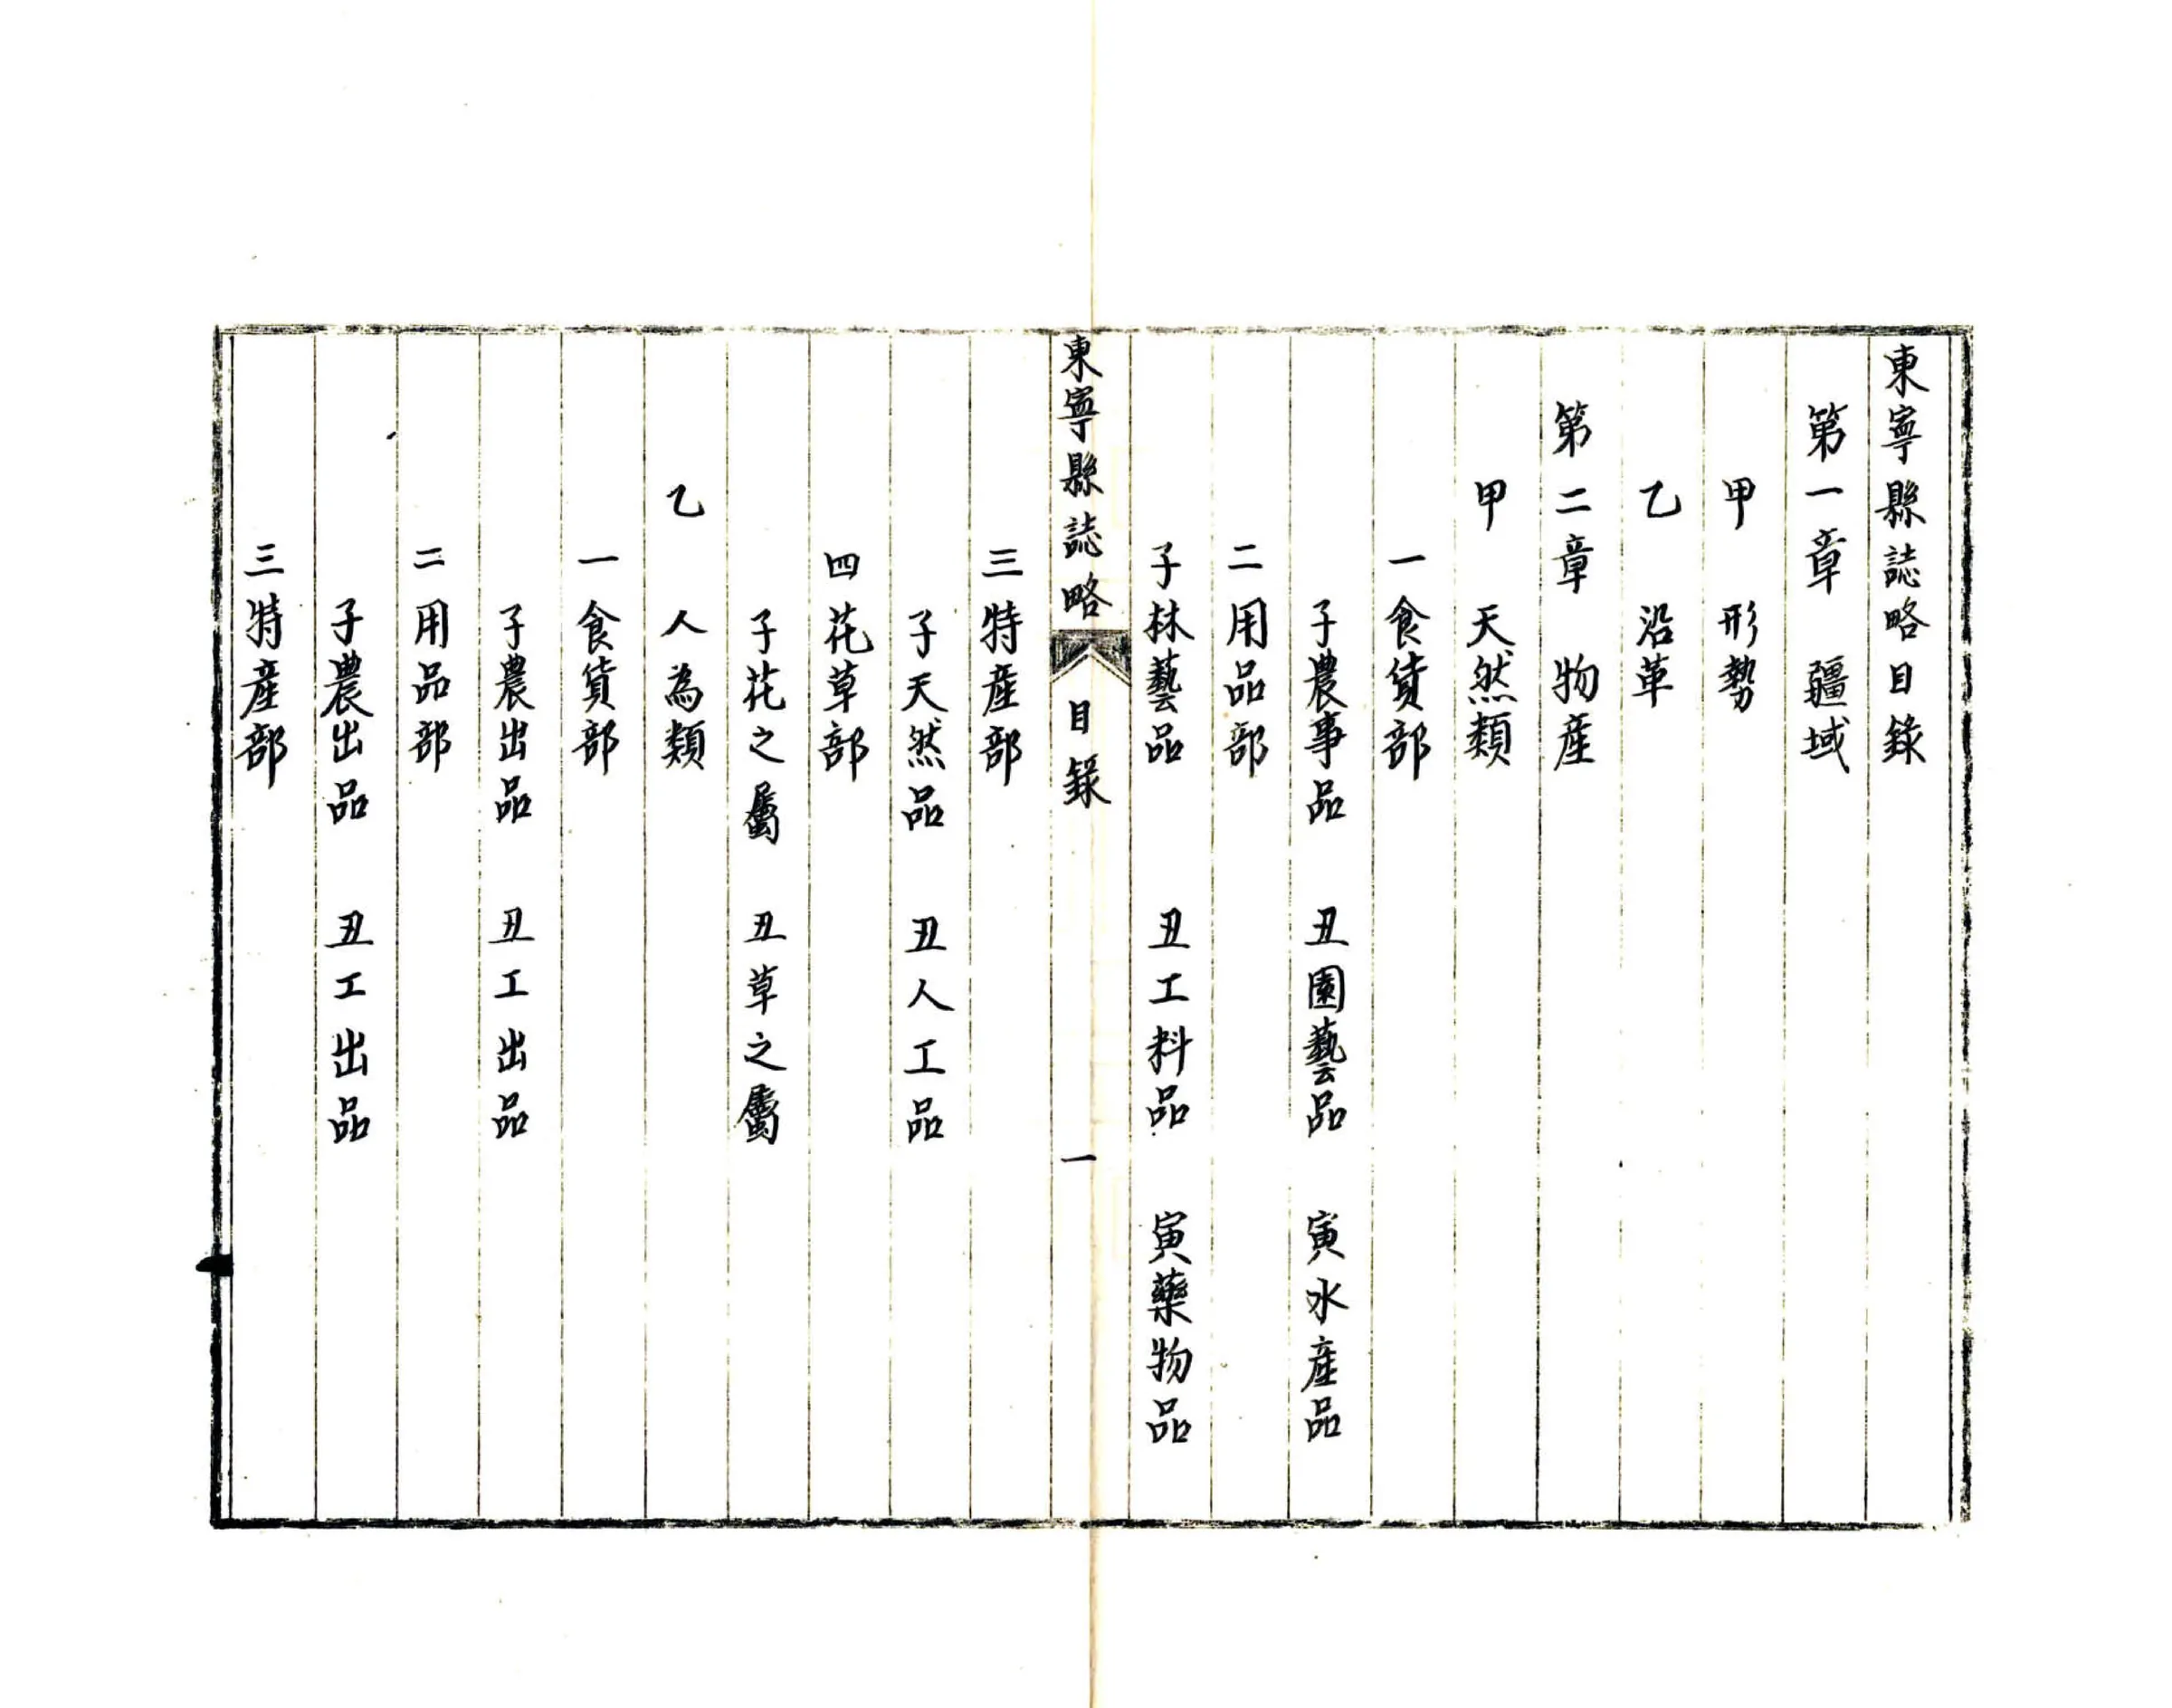 東寧縣誌略目錄
第一章 疆域
甲 形勢
乙 沿革
第二章 物産
甲 天然類
一 食貨部
子農事品 丑園藝品 寅水産品
二 用品部
子林藝品 丑工料品 寅藥物品
東寧縣誌略 目錄 一
三 特産部
子天然品 丑人工品
四 花草部
子花之屬 丑草之屬
乙 人為類
一 食貨部
子農出品 丑工出品
二 用品部
子農出品 丑工出品
三 特産部